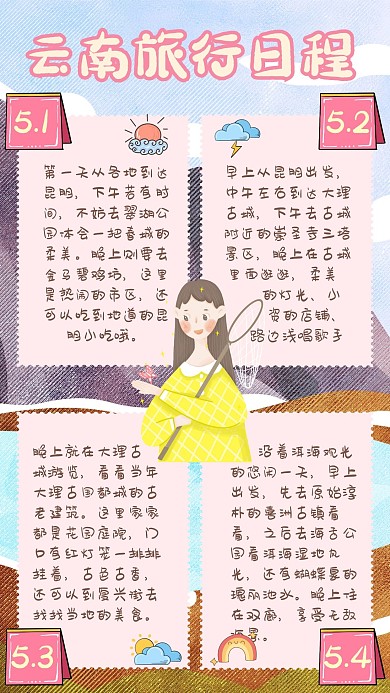 云南旅行日程
5.1
第一天从各地到达
昆明，下午若有时
间，不妨去翠湖公
园体会一把春城的
柔美。晚上则要去
金马碧鸡坊，这里
是热闹的市区，还
可以吃到地道的昆
明小吃哦。
5.2
早上从昆明出发，
中午左右到达大理
古城，下午去古城
附近的崇圣寺三塔
景区，晚上在古城
里面逛逛，柔美
的灯光、小
资的店铺、
路边浅唱歌手
晚上就在大理古
城游览，看看当年
大理古国都城的古
老建筑。这里家家
都是花园庭院，门
口有红灯笼一排排
挂着，古色古香，
还可以到复兴街去
找找当地的美食。
5.3
沿着洱海观光
的悠闲一天，早上
出发，先去原始淳
朴的喜洲古镇看
看，之后去海舌公
园看洱海湿地风
光，还有蝴蝶泉的
瑰丽池水。晚上住
在双廊，享受无敌
海景。
5.4